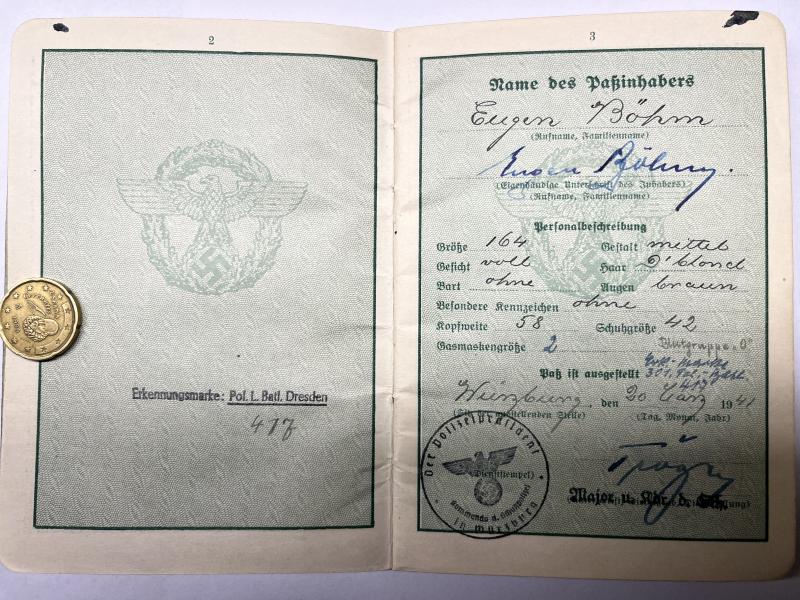 2
Erkennungsmarke: Pol. L. Batl. Dresden
417
3
Name des Paßinhabers
Eugen Böhm
(Rufname, Familienname)
Eugen Böhm.
(Eigenhändige Unterschrift des Inhabers)
(Rufname, Familienname)
Personalbeschreibung
Größe 164 Gestalt mittel
Gesicht voll Haar d'blond
Bart ohne Augen braun
Besondere Kennzeichen ohne
Kopfweite 58 Schuhgröße 42
Gasmaskengröße 2 Blutgruppe „O"
Erk.-Marke
Paß ist ausgestellt 301. Pol.-Batl.
417
Würzburg, den 20. März 1941
(Sitz der ausstellenden Stelle) (Tag, Monat, Jahr)
Der Polizeipräsident
(Dienststempel)
Kommando d. Schutzpolizei
in Würzburg
Major u. Kdr. d. Sch.